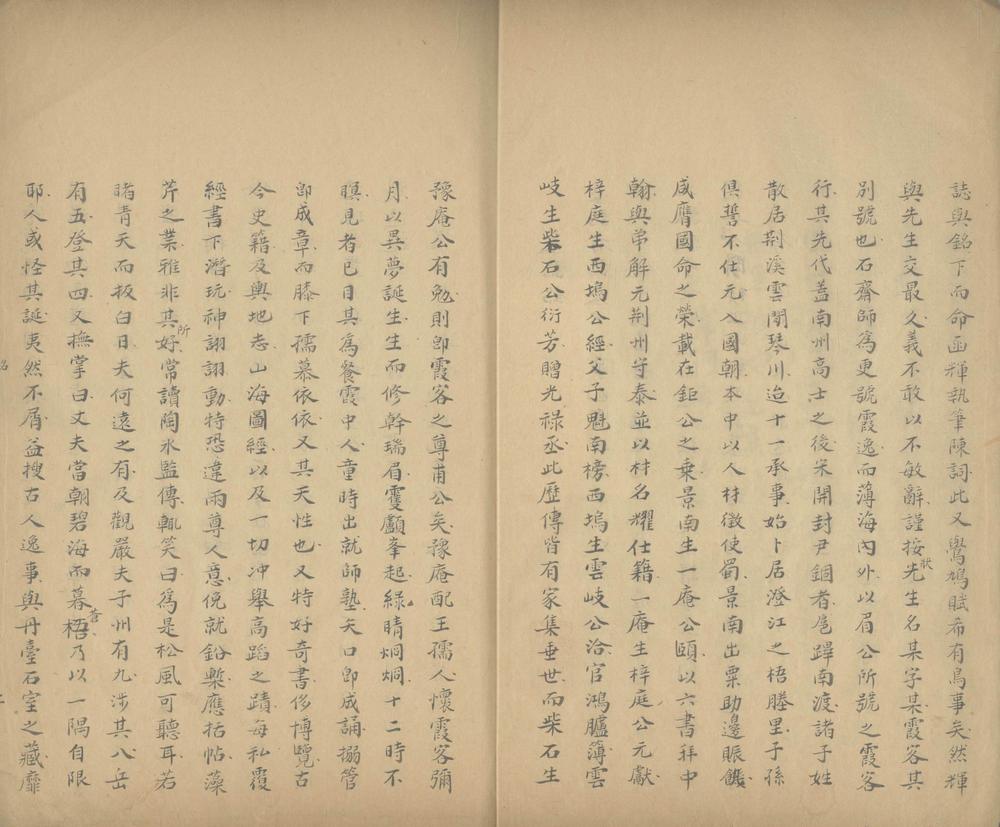 誌與銘下而命函輝執筆陳詞此又鷽鳩賦希有鳥事矣然輝
與先生交最久義不敢以不敏辭謹按狀先生名某字某霞客其
別號也石齋師為更號霞逸而薄海內外以眉公所號之霞客
行其先代蓋南州高士之後宋開封尹錮者扈蹕南渡諸子姓
散居荆溪雲間琴川迨十一承事始卜居澄江之梧塍里子孫
俱誓不仕元入國朝本中以人材徵使蜀景南出粟助邊賑饑
咸膺國命之榮載在鉅公之乘景南生一庵公頤以六書拜中
翰與弟解元荆州守泰並以材名耀仕籍一庵生梓庭公元獻
梓庭生西塢公經父子魁南榜西塢生雲岐公洽官鴻臚簿雲
岐生柴石公衍芳贈光祿丞此歷傳皆有家集垂世而柴石生
豫庵公有勉則卽霞客之尊甫公矣豫庵配王孺人懷霞客彌
月以異夢誕生生而修幹瑞眉雙顱峯起綠睛炯炯十二時不
瞑見者已目其為餐霞中人童時出就師塾矢口卽成誦搦管
卽成章而膝下孺慕依依又其天性也又特好奇書侈博覽古
今史籍及輿地志山海圖經以及一切冲舉高蹈之蹟每私覆
經書下潛玩神詡詡動特恐違兩尊人意俛就鉛槧應括帖藻
芹之業雅非其所好常讀陶水監傳輒笑曰為是松風可聽耳若
睹青天而扳白日夫何遠之有及觀嚴夫子州有九涉其八岳
有五登其四又撫掌曰丈夫當朝碧海而暮蒼梧乃以一隅自限
耶人或怪其誕夷然不屑益搜古人逸事與丹臺石室之藏靡